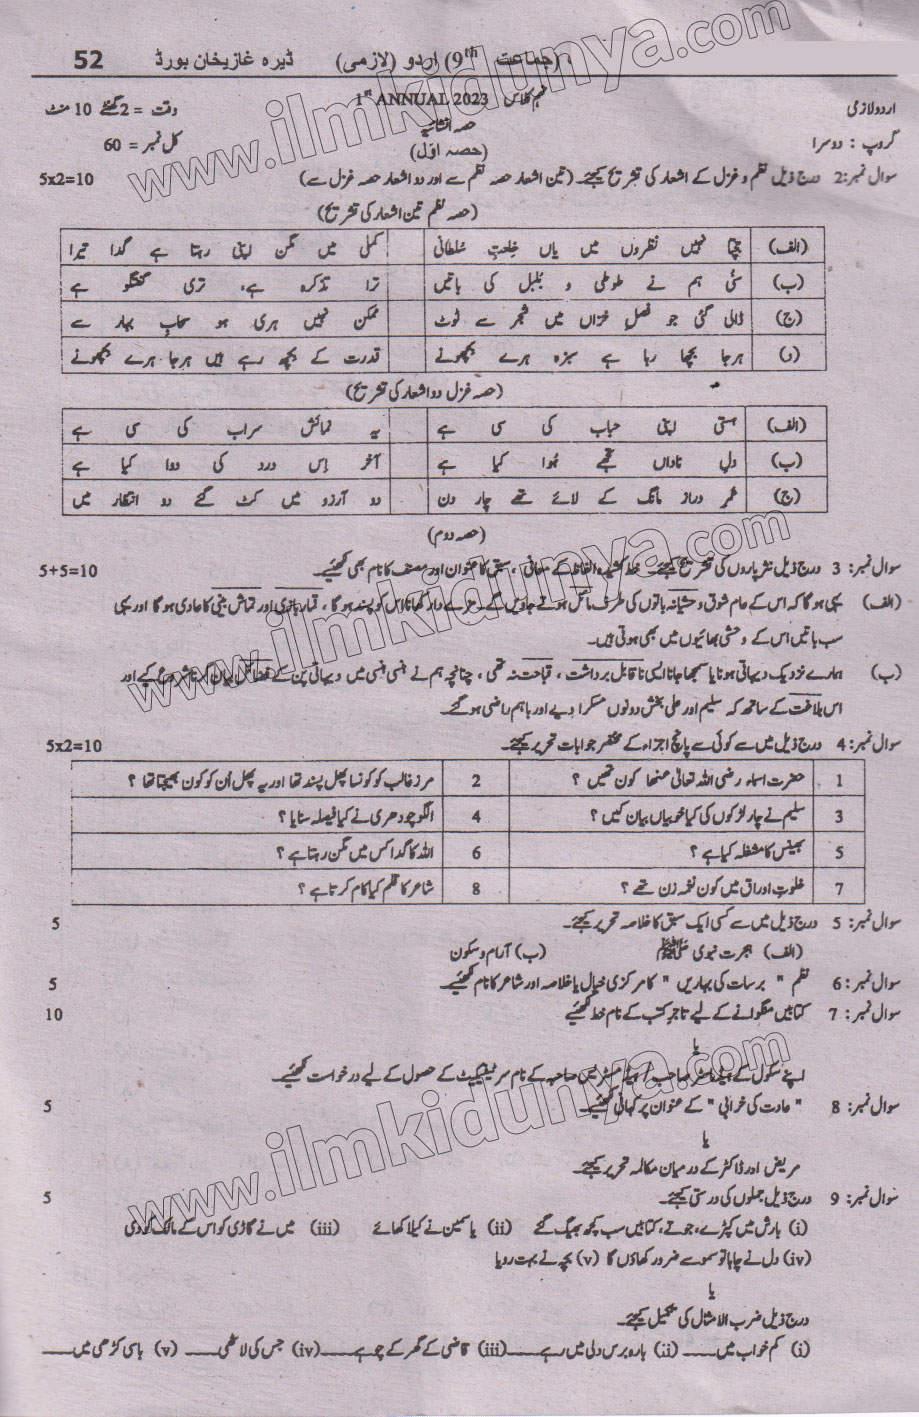 52 ڈیرہ غازیخان بورڈ (جماعت 9th) اردو (لازمی)
اردو لازمی نہم کلاس 1st ANNUAL 2023 وقت = 2 گھنٹے 10 منٹ
گروپ : دوسرا حصہ انشائیہ کل نمبر = 60
(حصہ اوّل)
سوال نمبر:2 درج ذیل نظم و غزل کے اشعار کی تشریح کیجئے۔ (تین اشعار حصہ نظم سے اور دو اشعار حصہ غزل سے) 5x2=10
(حصہ نظم تین اشعار کی تشریح)
(الف) جچتا نہیں نظروں میں یاں خلعتِ سُلطانی کملی میں مگن اپنی رہتا ہے گدا تیرا
(ب) سُنی ہم نے طوطی و بُلبل کی باتیں ترا تذکرہ ہے، تری گفتگو ہے
(ج) ڈالی گئی جو فصلِ خزاں میں شجر سے ٹوٹ ممکن نہیں ہری ہو سحابِ بہار سے
(د) ہرجا بچھا رہا ہے سبزہ ہرے بچھونے قدرت کے بچھ رہے ہیں ہرجا ہرے بچھونے
(حصہ غزل دو اشعار کی تشریح)
(الف) ہستی اپنی حباب کی سی ہے یہ نمائش سراب کی سی ہے
(ب) دلِ ناداں تجھے ہُوا کیا ہے آخر اِس درد کی دوا کیا ہے
(ج) عُمرِ دراز مانگ کے لائے تھے چار دن دو آرزو میں کٹ گئے دو انتظار میں
(حصہ دوم)
سوال نمبر: 3 درج ذیل نثر پاروں کی تشریح کیجئے۔ خط کشیدہ الفاظ کے معانی ، سبق کا عنوان اور مصنف کا نام بھی لکھیئے۔ 5+5=10
(الف) یہی ہو گا کہ اس کے عام شوق وحشیانہ باتوں کی طرف مائل ہوتے جاویں گے۔ مزے دار کھانا اس کو پسند ہو گا ، قمار بازی اور تماش بینی کا عادی ہو گا اور یہی
سب باتیں اس کے وحشی بھائیوں میں بھی ہوتی ہیں۔
(ب) ہمارے نزدیک دیہاتی ہونا یا سمجھا جانا ایسی ناقابل برداشت ، قباحت نہ تھی ، چنانچہ ہم نے ہنسی ہنسی میں دیہاتی پن کے فضائل بیان کرنا شروع کیے اور
اس بلاغت کے ساتھ کہ سلیم اور علی بخش دونوں مسکرا دیے اور باہم راضی ہو گئے۔
سوال نمبر: 4 درج ذیل میں سے کوئی سے پانچ اجزاء کے مختصر جوابات تحریر کیجئے۔ 5x2=10
1 حضرت اسماء رضی اللہ تعالیٰ عنھا کون تھیں ؟ 2 مرزا غالب کو کونسا پھل پسند تھا اور یہ پھل اُن کو کون بھیجتا تھا ؟
3 سلیم نے چار لڑکوں کی کیا خوبیاں بیان کیں ؟ 4 الگو چودھری نے کیا فیصلہ سنایا ؟
5 بھینس کا مشغلہ کیا ہے ؟ 6 اللہ کا گدا کس میں مگن رہتا ہے ؟
7 خلوتِ اوراق میں کون نغمہ زن تھے ؟ 8 شاعر کا قلم کیا کام کرتا ہے ؟
سوال نمبر: 5 درج ذیل میں سے کسی ایک سبق کا خلاصہ تحریر کیجئے۔ 5
(الف) ہجرت نبوی ﷺ (ب) آرام و سکون
سوال نمبر: 6 نظم " برسات کی بہاریں " کا مرکزی خیال یا خلاصہ اور شاعر کا نام لکھیئے۔ 5
سوال نمبر: 7 کتابیں منگوانے کے لیے تاجر کتب کے نام خط لکھیئے 10
یا
اپنے سکول کے ہیڈ ماسٹر صاحب / ہیڈ مسٹریس صاحبہ کے نام سرٹیفکیٹ کے حصول کے لیے درخواست لکھیئے۔
سوال نمبر: 8 " عادت کی خرابی " کے عنوان پر کہانی لکھیئے۔ 5
یا
مریض اور ڈاکٹر کے درمیان مکالمہ تحریر کیجئے۔
سوال نمبر: 9 درج ذیل جملوں کی درستی کیجئے۔ 5
(i) بارش میں کپڑے، جوتے، کتابیں سب کچھ بھیگ گئے (ii) یاسمین نے کیلا کھائے (iii) میں نے گاڑی کو اس کے مالک کو دی
(iv) دل نے چاہا تو سموسے ضرور کھاؤں گا (v) بچہ نے بہت رویا
یا
درج ذیل ضرب الامثال کی تکمیل کیجئے۔
(i) کم خواب میں ۔۔۔۔ (ii) بارہ برس دلی میں رہے ۔۔۔۔ (iii) قاضی کے گھر کے چوہے ۔۔۔۔ (iv) جس کی لاٹھی ۔۔۔۔ (v) باسی کڑھی میں ۔۔۔۔
www.ilmkidunya.com
www.ilmkidunya.com
www.ilmkidunya.com